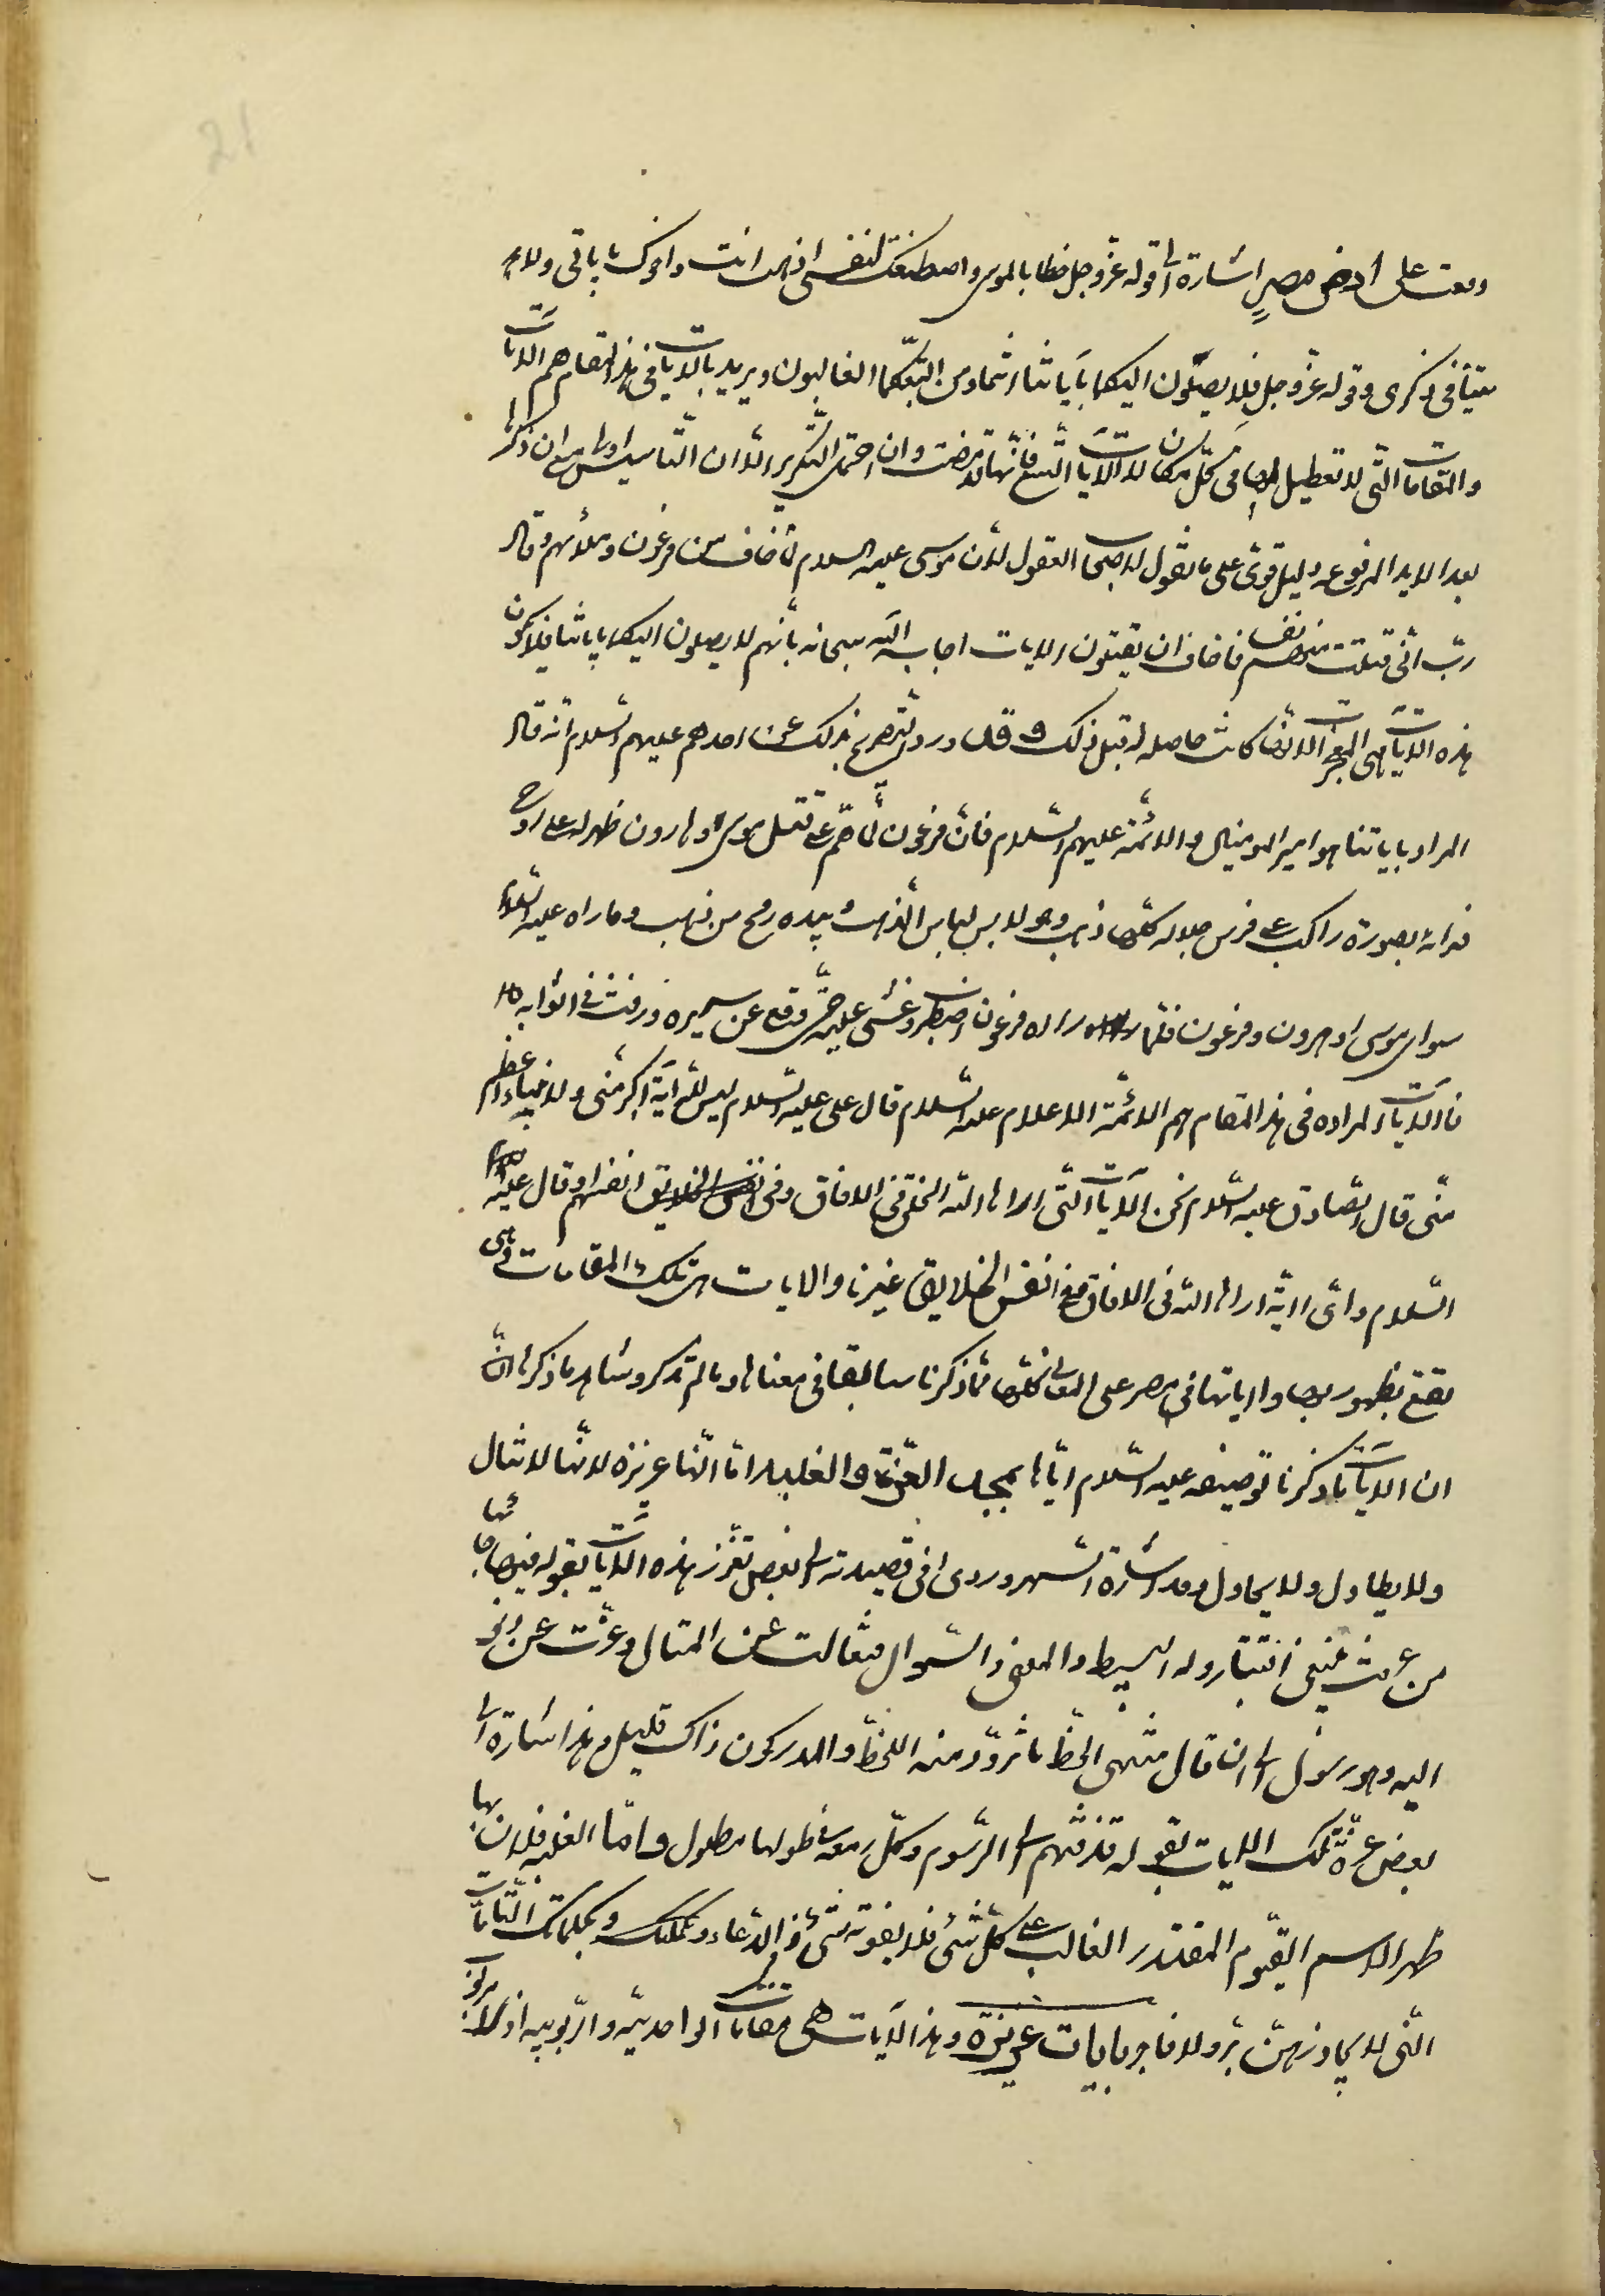 وقعت على أرض مصرٍ اشارة الى قوله عزوجل خطابا لموسى واصطنعتك لنفسى اذهب انت واخوك بآياتى ولا
تنيا فى ذكرى وقوله عزوجل فلا يصلون اليكما بآياتنا انتما ومن اتبعكما الغالبون ويريد بالآيات فى هذا المقام هم الآيات
والمقامات التى لا تعطيل لها فى كل مكان لا الآيات التسع فانها قد مضت وان احتمل التكرير الا ان التأسيس اولى مع ان ذكرها
بعد الايد المرفوعه دليل قوى على ما نقول لاصحاب العقول لان موسى عليه السلام لما خاف من فرعون وملائهم وقال
رب انى قتلت منهم نفسا فاخاف ان يقتلون الايات اجابه الله سبحانه بانهم لا يصلون اليكما بآياتنا فلا يكون
هذه الآيات هى المعجزات لانها كانت حاصله له قبل ذلك وقد ورد التصريح بذلك عن احدهم عليهم السلام انه قال
المراد باياتنا هو امير المومنين والائمة عليهم السلام فان فرعون لما هم على قتل موسى وهارون ظهر له على روحى
فداه بصورة راكب على فرس جلاله كلها ذهب وهو لابس لباس الذهب وبيده رمح من ذهب وما راه عليه السلام
سوى موسى وهرون وفرعون فلما راه فرعون اضطرب وغشى عليه حتى وقع عن سريره وزرفت فى اثوابه ه
فالآيات المراده فى هذا المقام هم الائمة الاعلام عليه السلام قال على عليه السلام ليس لله آية اكبر منى ولا نباء اعظم
منى قال الصادق عليه السلام نحن الآيات التى اراها الله الخلق فى الافاق وفى انفسهم وقال عليه
السلام واى اية اراها الله فى الافاق وفى انفس الخلايق غيرنا والايات هى تلك المقامات وهى
تقع بظهورها واياتها فى مصر على المعانى كلها مما ذكرنا سابقا فى معناها وما لم نذكر وشاهد ما ذكرنا ان
ان الآيات ما ذكرنا توصيفه عليه السلام اياها بمجد العزة والغلبه اما انها عزيزه لانها لا تنال
ولا يطاول ولا يحاول وقد اشارة السهروردى فى قصيدته الى بعض تعزز هذه الآيات بقوله فيها
من يبتغى اقتباروله البسيط والمعنى والسؤال فتعالت عن المنال وعزت عن دنو
اليه وهو رسول الى ان قال منتهى الحظ ما تزود منه اللحظ والمدركون ذاك قليل وهذا اشارة الى
بعض عزة تلك الايات بقوله قذفتهم الى الرسوم وكل دمعه فى طلولها مطلول واما الغلبه فلان بها
ظهر الاسم القيوم المقتدر الغالب على كل شئ فلا يفوته شئ وفى الدعاء وبملكك وبكلماتك التامات
التى لا يجاوزهن بر ولا فاجر بايات عزيزة وهذا الايات هى مقامات الواحدية والربوبيه اذ لا